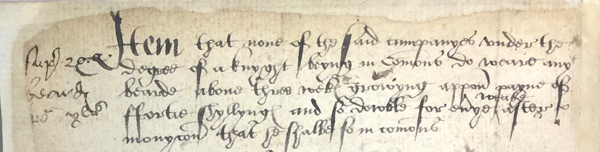 Item that none of the said cumpanyes under the
degree of a knyght beyng in Comons do weare any
bearde above three wek growyng uppon payne of
fortie shyllyng and so dowble for every weake after
monycon that he shalbe so in comons